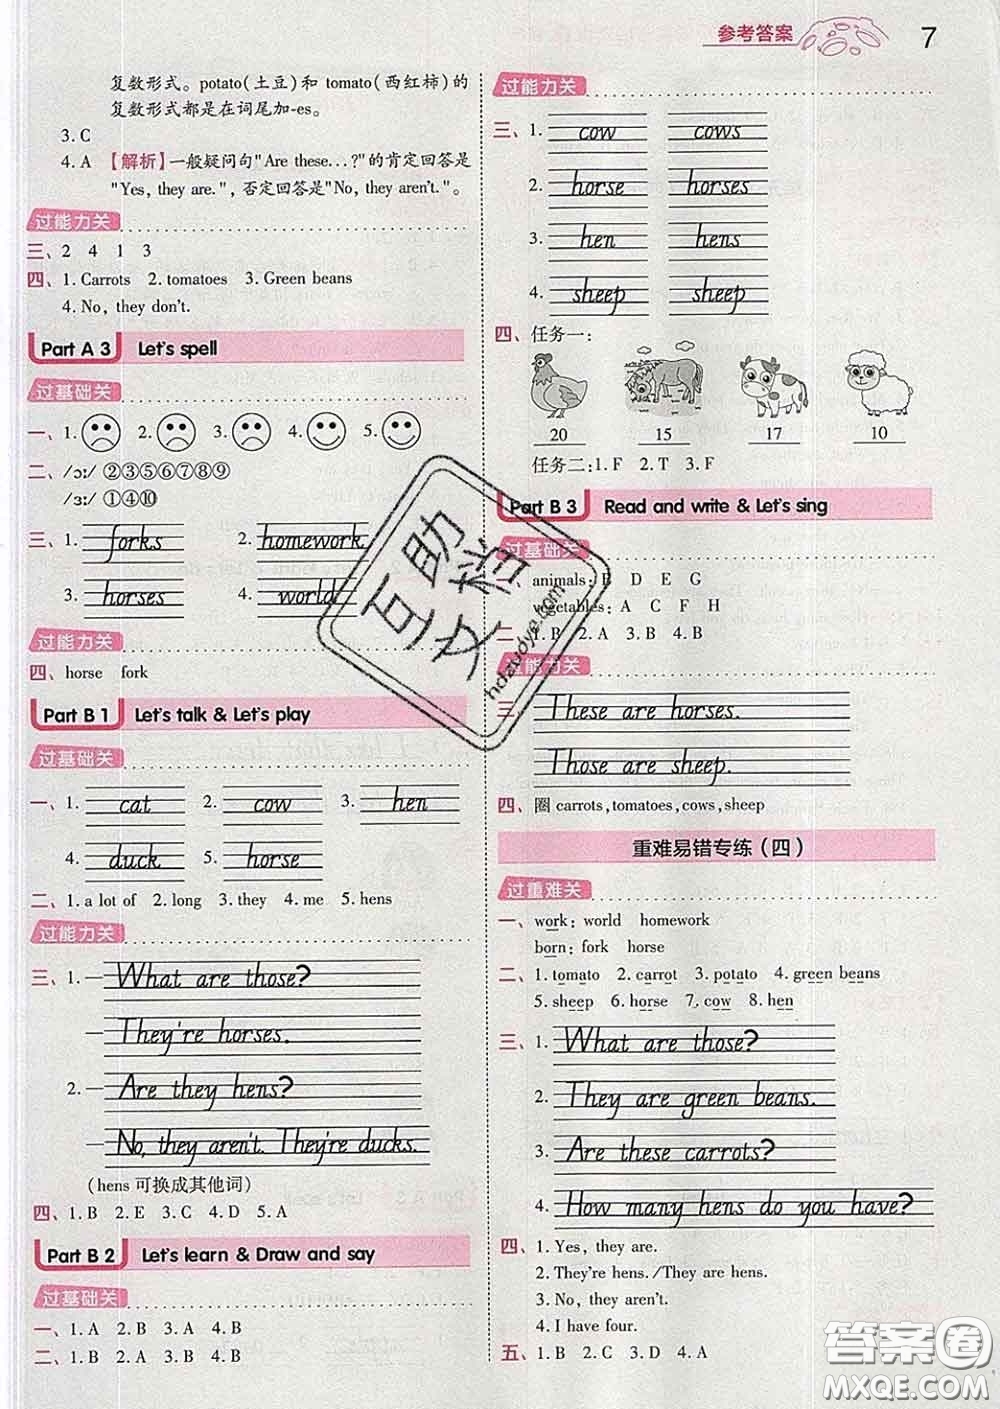 参考答案 7
复数形式。potato(土豆)和 tomato(西红柿)的
复数形式都是在词尾加-es。
3. C
4. A 【解析】一般疑问句"Are these...?"的肯定回答是
"Yes, they are."，否定回答是"No, they aren't."。
过能力关
三、2 4 1 3
四、1. Carrots 2. tomatoes 3. Green beans
4. No, they don't.
Part A 3 Let's spell
过基础关
一、1. 2. 3. 4. 5.
二、/ɔː/ ②③⑤⑥⑦⑧⑨
/ɜː/ ①④⑩
三、1. forks 2. homework
3. horses 4. world
过能力关
四、horse fork
Part B 1 Let's talk & Let's play
过基础关
一、1. cat 2. cow 3. hen
4. duck 5. horse
二、1. a lot of 2. long 3. they 4. me 5. hens
过能力关
三、1. — What are those?
— They're horses.
2. — Are they hens?
— No, they aren't. They're ducks.
(hens 可换成其他词)
四、1. B 2. E 3. C 4. D 5. A
Part B 2 Let's learn & Draw and say
过基础关
一、1. A 2. B 3. A 4. B
二、1. B 2. B 3. A 4. B
过能力关
三、1. cow cows
2. horse horses
3. hen hens
4. sheep sheep
四、任务一:
20 15 17 10
任务二:1. F 2. T 3. F
Part B 3 Read and write & Let's sing
过基础关
animals: B D E G
vegetables: A C F H
1. B 2. A 3. B 4. B
过能力关
三、These are horses.
Those are sheep.
四、圈 carrots, tomatoes, cows, sheep
重难易错专练(四)
过重难关
一、work: world homework
born: fork horse
二、1. tomato 2. carrot 3. potato 4. green beans
5. sheep 6. horse 7. cow 8. hen
三、1. What are those?
2. They are green beans.
3. Are these carrots?
4. How many hens do you have?
四、1. Yes, they are.
2. They're hens. /They are hens.
3. No, they aren't.
4. I have four.
五、1. B 2. C 3. D 4. A
互助文档
hdzuoye.com
答案圈
MXQE.COM